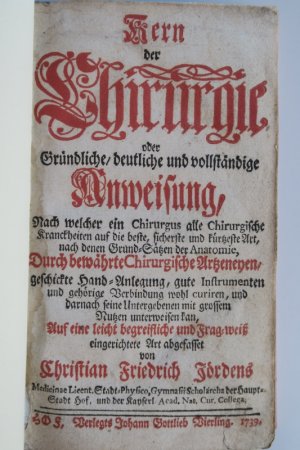 Kern
der
Chirurgie
oder
Gründliche/ deutliche und vollständige
Anweisung,
Nach welcher ein Chirurgus alle Chirurgische
Kranckheiten auf die beste, sicherste und kürtzeste Art,
nach denen Grund-Sätzen der Anatomie,
Durch bewährte Chirurgische Artzeneyen,
geschickte Hand-Anlegung, gute Instrumenten
und gehörige Verbindung wohl curiren, und
darnach seine Untergebenen mit grossem
Nutzen unterweisen kan,
Auf eine leicht begreifliche und Frag-weiß
eingerichtete Art abgefasset
von
Christian Friedrich Jördens
Medicinae Licent. Stadt-Physico, Gymnasii Scholarcha der Haupt-
Stadt Hof, und der Kayserl. Acad. Nat. Cur. Collega.
HOF, Verlegts Johann Gottlieb Vierling. 1739.